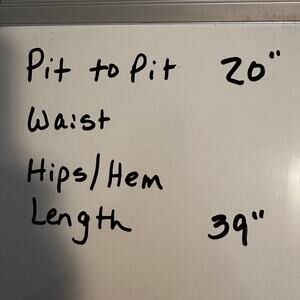 Pit to Pit 20"
Waist
Hips/Hem
Length 39"